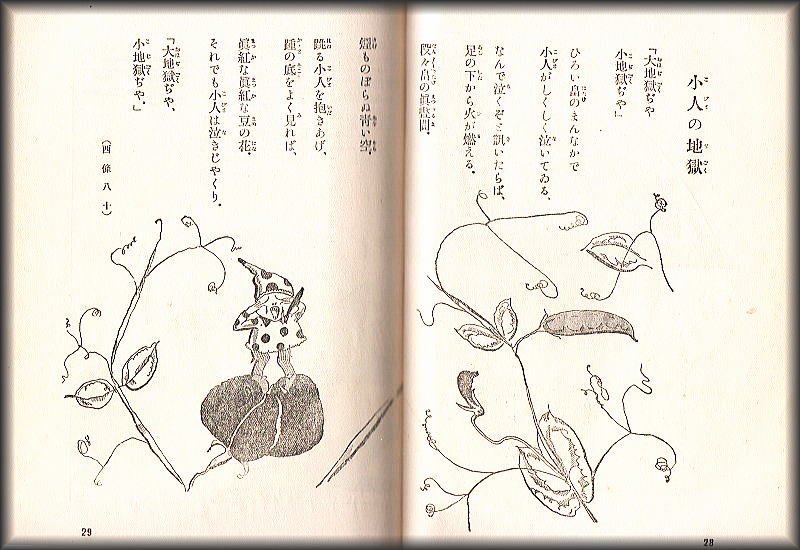 小人の地獄
「大地獄ぢや
小地獄ぢや」
ひろい畠のまんなかで
小人がしくしく泣いてゐる、
なんで泣くぞと訊いたらば、
足の下から火が燃える。
段々畠の眞晝間。
煙ものぼらぬ靑い空。
跳る小人を抱きあげ、
踵の底をよく見れば、
眞紅な眞紅な豆の花。
それでも小人は泣きじやくり。
「大地獄ぢや、
小地獄ぢや。」
(西條八十)
29
28